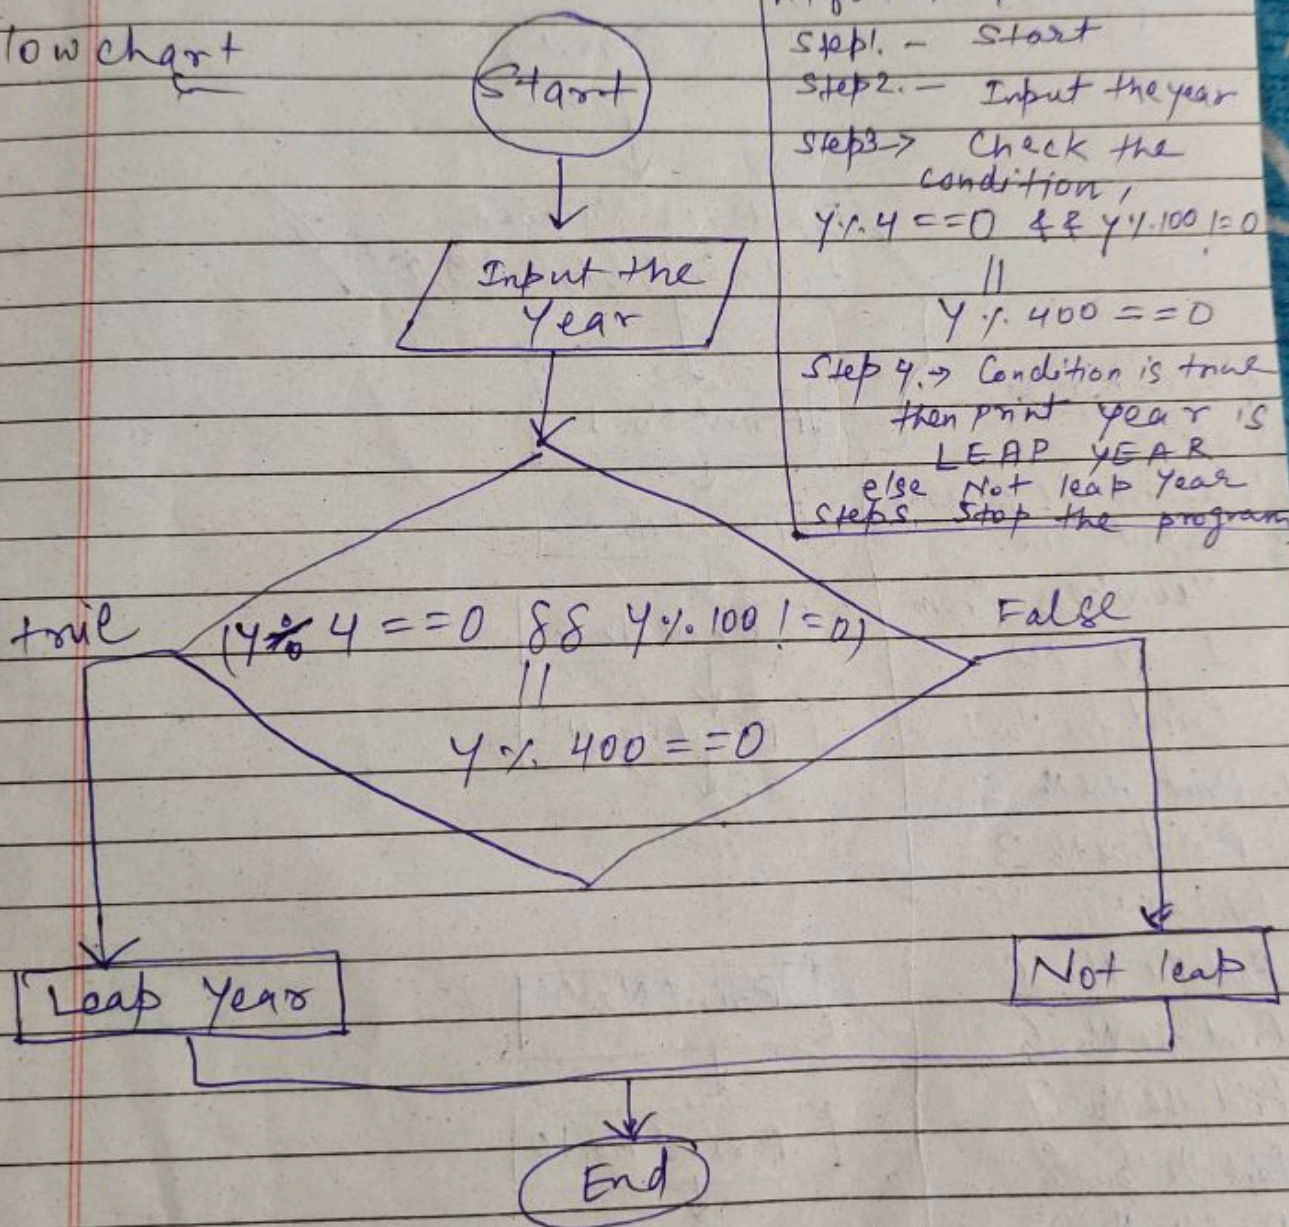 low chart
Start
Input the
Year
true
(Y % 4 = = 0 && Y % 100 ! = 0)
||
Y % 400 = = 0
False
Leap Year
Not leap
End
Step1. - Start
Step2. - Input the year
Step3 → Check the
condition,
Y % 4 = = 0 && Y % 100 != 0
||
Y % 400 = = 0
Step 4. → Condition is true
then print year is
LEAP YEAR
else Not leap Year
Step5. Stop the program